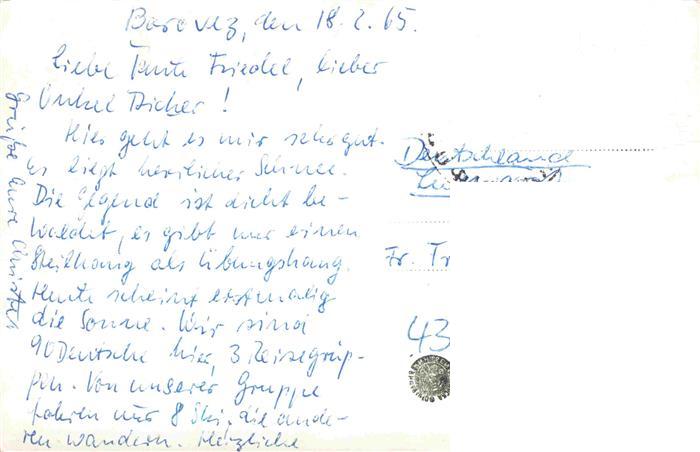 Borovez, den 18.2.65.
Liebe Tante Friedel, lieber
Onkel !
Hier geht es mir sehr gut.
Es liegt herrlicher Schnee.
Die Gegend ist dicht be-
waldet, es gibt nur einen
Steilhang als Übungshang.
Heute scheint erstmalig
die Sonne. Wir sind
90 Deutsche hier, 3 Reisegrup-
pen. Von unserer Gruppe
fahren nur 8 Ski, die ande-
ren wandern. Herzliche
Grüße Eure
Deutschland
Fr. Tr
43